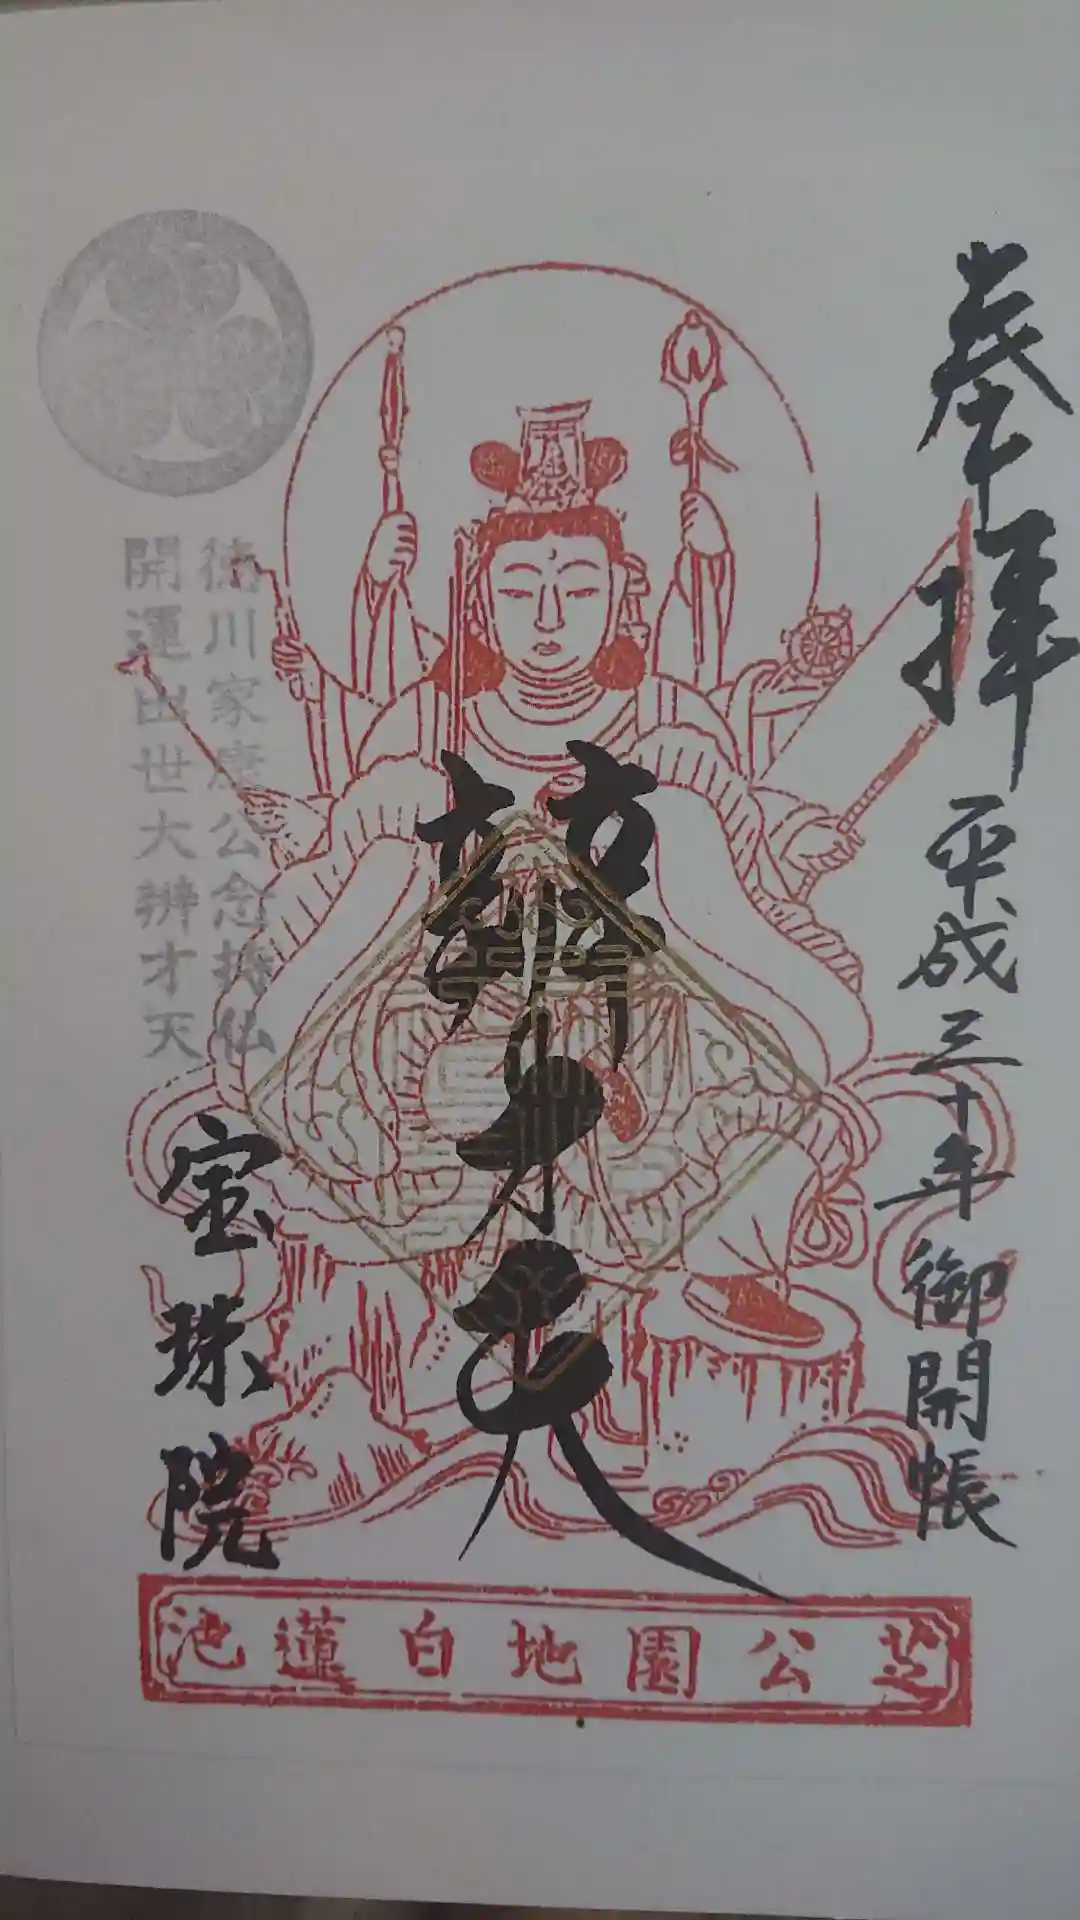 奉拝 平成三十年 御開帳
辯才天
徳川家康公念持仏
開運出世大辨才天
宝珠院
芝公園地白蓮池